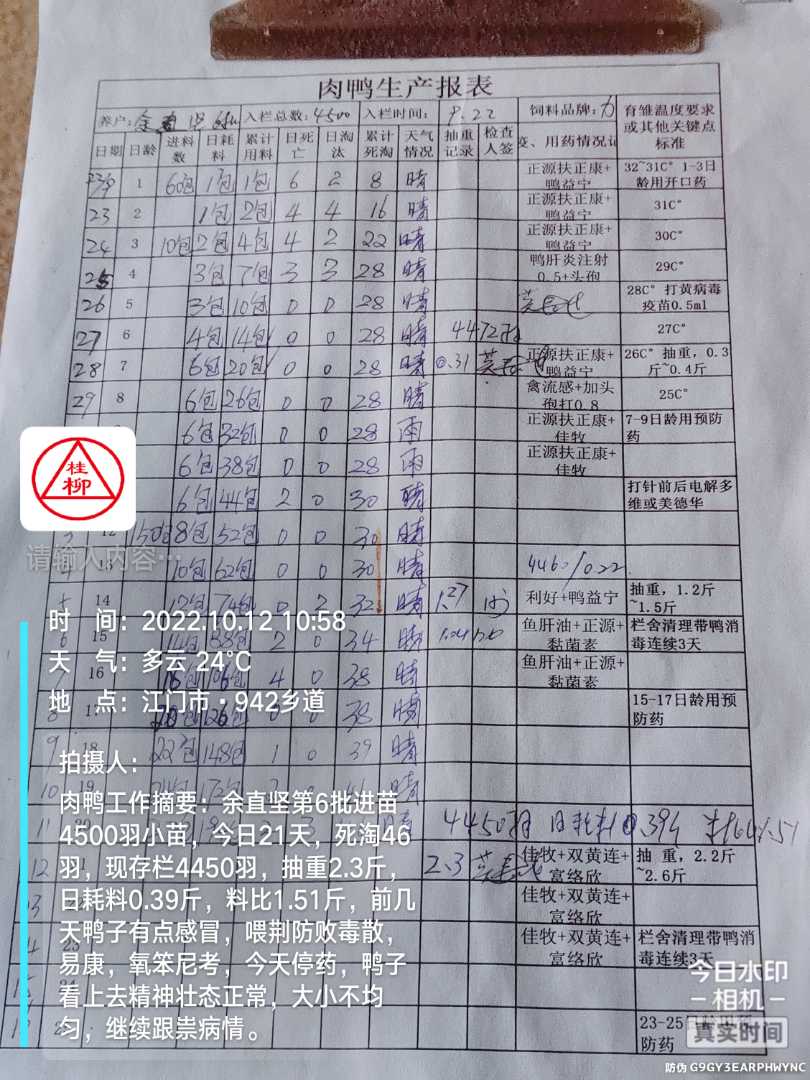 肉鸭生产报表
养户: 入栏总数:4500 入栏时间: 9.22 饲料品牌: 育雏温度要求或其他关键点标准
日期 日龄 进料数 日耗料 累计用料 日死亡 日淘汰 累计死淘 天气情况 抽重记录 检查人签 疫、用药情况记
1 60包 1包 1包 6 2 8 晴 正源扶正康+鸭益宁 32~31C° 1-3日龄用开口药
23 2 1包 2包 4 4 16 晴 正源扶正康+鸭益宁 31C°
24 3 10包 2包 4包 4 2 22 晴 正源扶正康+鸭益宁 30C°
25 4 3包 7包 3 3 28 晴 鸭肝炎注射0.5+头孢 29C°
26 5 3包 10包 0 0 28 晴 28C° 打黄病毒疫苗0.5ml
27 6 4包 14包 0 0 28 晴 4472羽 27C°
28 7 6包 20包 0 0 28 晴 0.31 正源扶正康+鸭益宁 26C° 抽重,0.3斤~0.4斤
29 8 6包 26包 0 0 28 晴 禽流感+加头孢打0.8 25C°
6包 32包 0 0 28 雨 正源扶正康+佳牧 7-9日龄用预防药
6包 38包 0 0 28 雨 正源扶正康+佳牧
6包 44包 2 0 30 晴 打针前后电解多维或美德华
3 12 150包 8包 52包 0 0 30 晴
4 13 10包 62包 0 0 30 晴 4460/0.22
5 14 12包 74包 0 2 32 晴 1.27 利好+鸭益宁 抽重,1.2斤~1.5斤
6 15 14包 88包 2 0 34 晴 鱼肝油+正源+黏菌素 栏舍清理带鸭消毒连续3天
16 106包 4 0 38 晴 鱼肝油+正源+黏菌素
8 17 126包 0 38 晴 15-17日龄用预防药
9 18 22包 148包 1 0 39 晴
10 19 晴
11 20 4450羽 日耗料0.394
12 2.3 佳牧+双黄连+富络欣 抽 重,2.2斤~2.6斤
佳牧+双黄连+富络欣
佳牧+双黄连+富络欣 栏舍清理带鸭消毒连续3天
23-25日龄用预防药
桂柳
请输入内容…
时 间:2022.10.12 10:58
天 气:多云 24℃
地 点:江门市·942乡道
拍摄人:
肉鸭工作摘要:余直坚第6批进苗
4500羽小苗,今日21天,死淘46
羽,现存栏4450羽,抽重2.3斤,
日耗料0.39斤,料比1.51斤,前几
天鸭子有点感冒,喂荆防败毒散,
易康,氧笨尼考,今天停药,鸭子
看上去精神壮态正常,大小不均
匀,继续跟祟病情。
今日水印
相机
真实时间
防伪 G9GY3EARPHWYNC